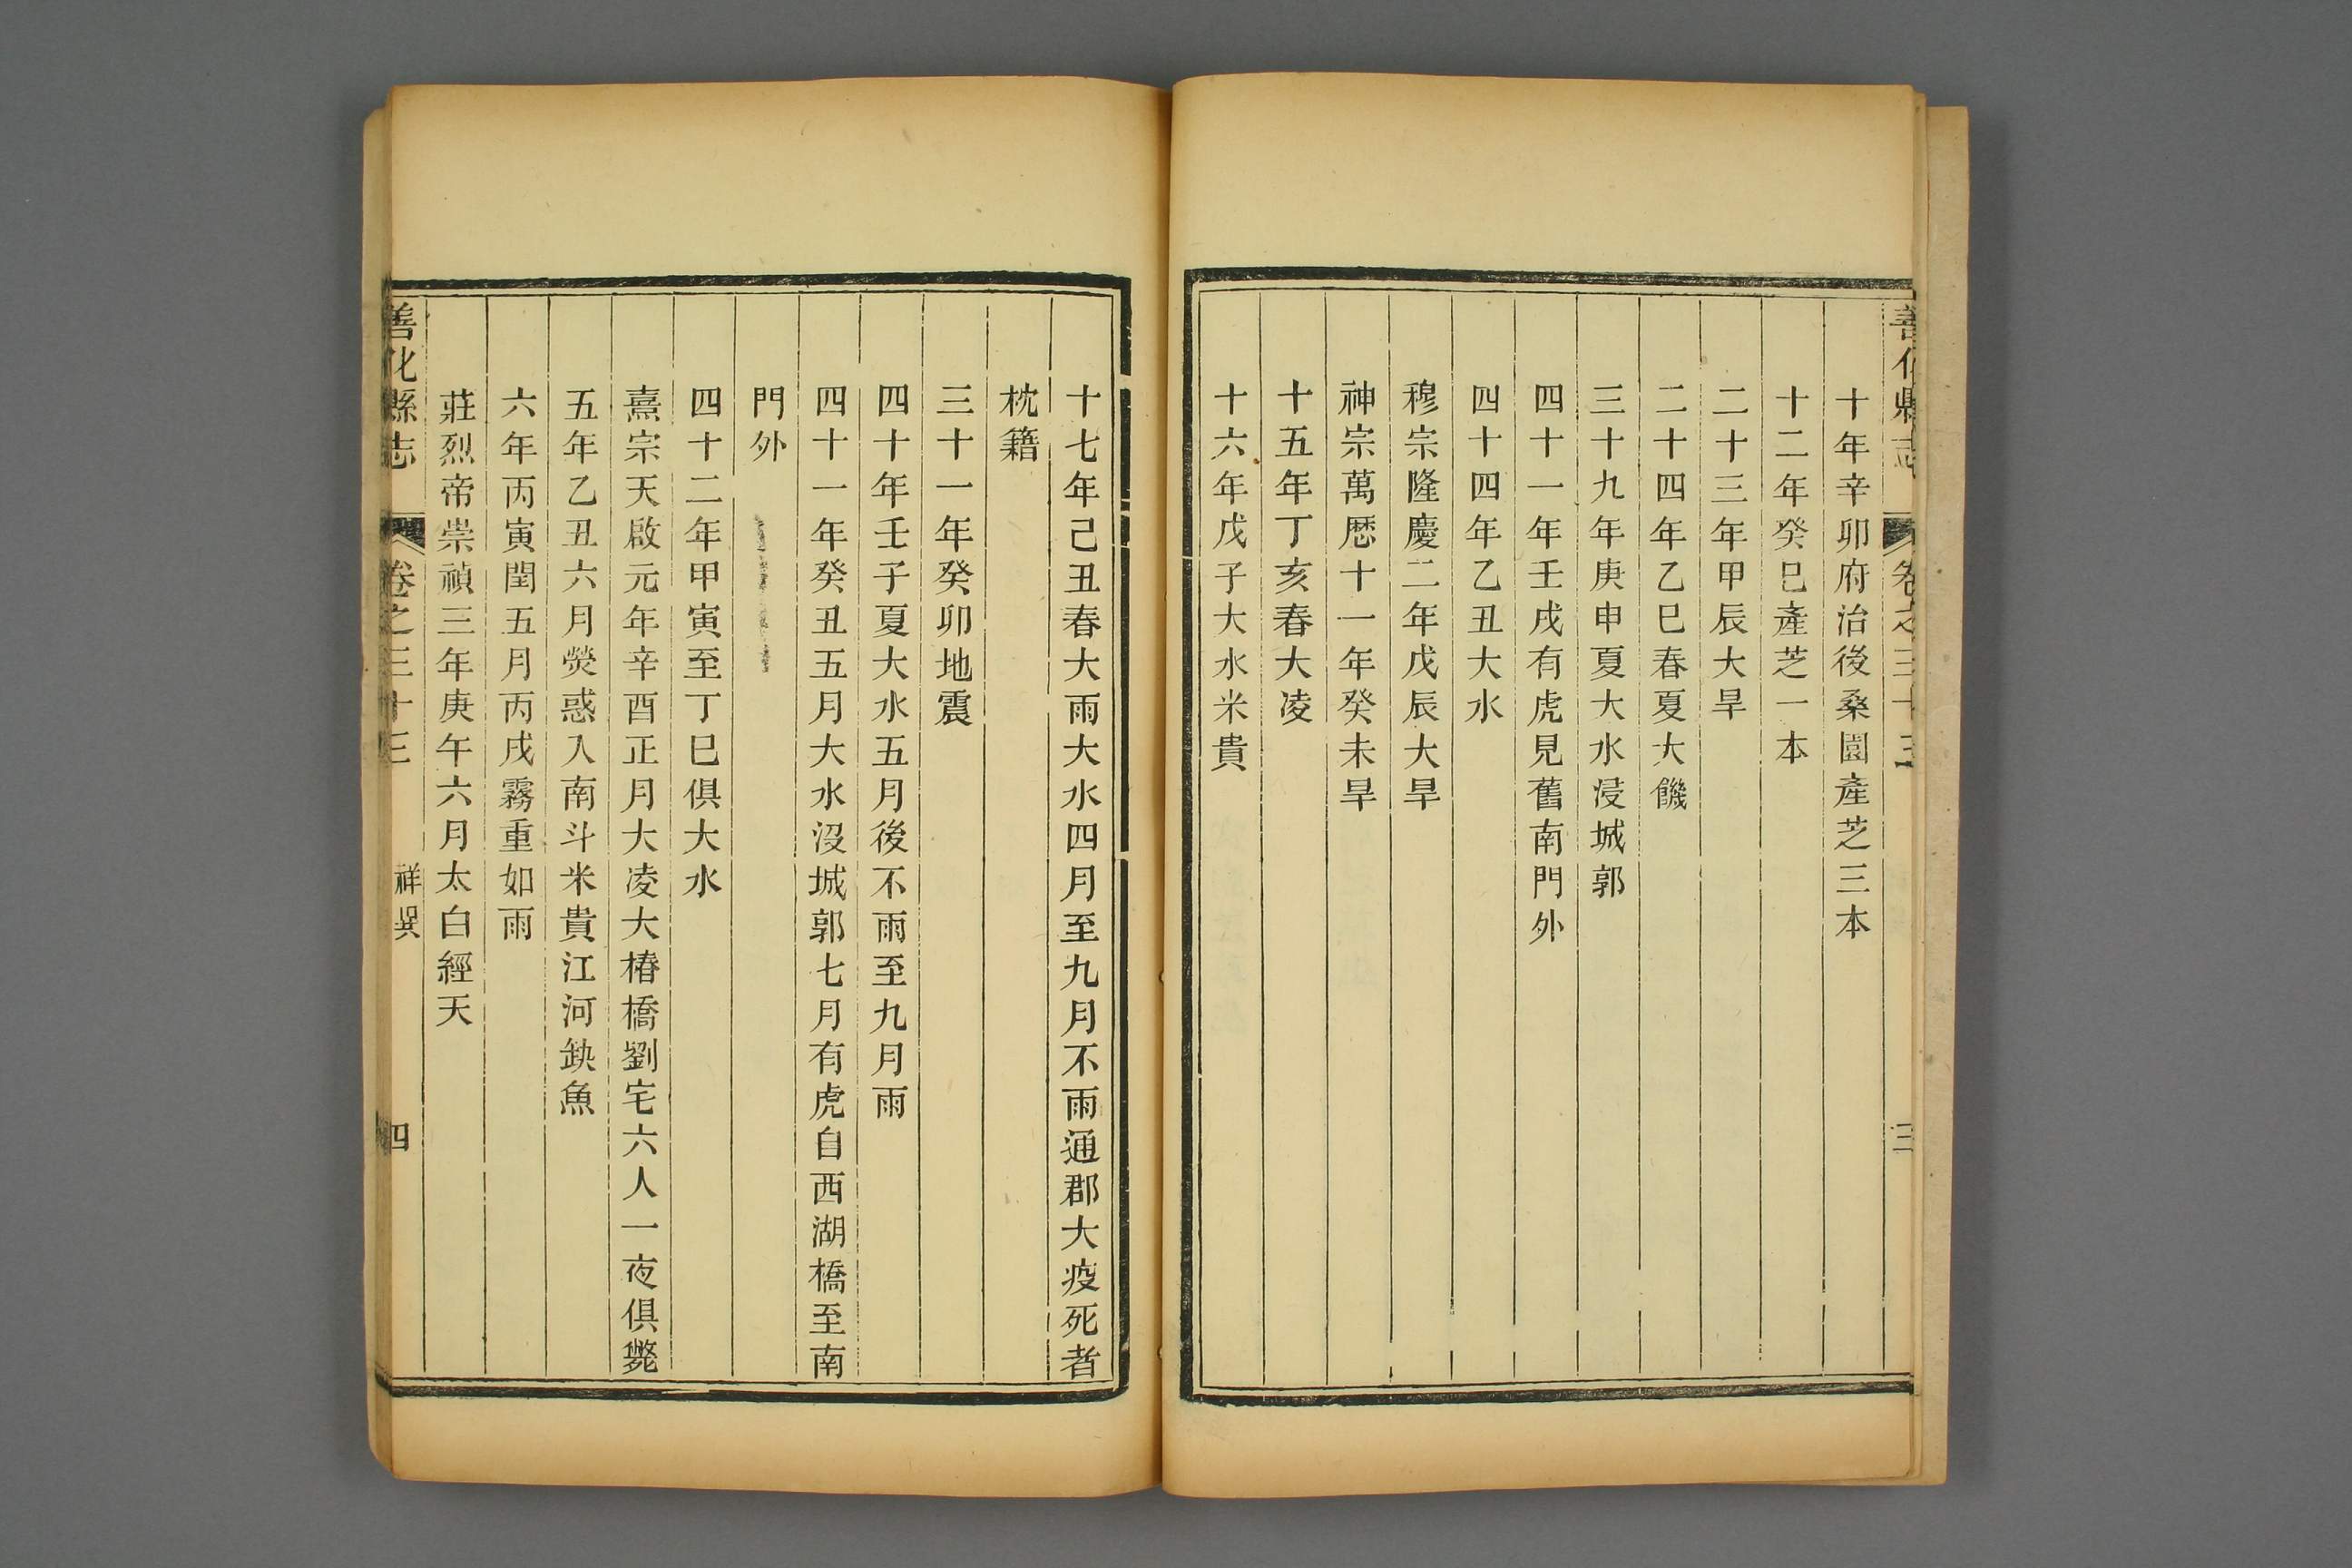 善化縣志 卷之三十三 三
十年辛卯府治後桑園產芝三本
十二年癸巳產芝一本
二十三年甲辰大旱
二十四年乙巳春夏大饑
三十九年庚申夏大水浸城郭
四十一年壬戌有虎見舊南門外
四十四年乙丑大水
穆宗隆慶二年戊辰大旱
神宗萬厯十一年癸未旱
十五年丁亥春大凌
十六年戊子大水米貴
十七年己丑春大雨大水四月至九月不雨通郡大疫死者
枕籍
三十一年癸卯地震
四十年壬子夏大水五月後不雨至九月雨
四十一年癸丑五月大水沒城郭七月有虎自西湖橋至南
門外
四十二年甲寅至丁巳俱大水
熹宗天啟元年辛酉正月大凌大椿橋劉宅六人一夜俱斃
五年乙丑六月熒惑入南斗米貴江河缺魚
六年丙寅閏五月丙戌霧重如雨
莊烈帝崇禎三年庚午六月太白經天
善化縣志 卷之三十三 祥異 四